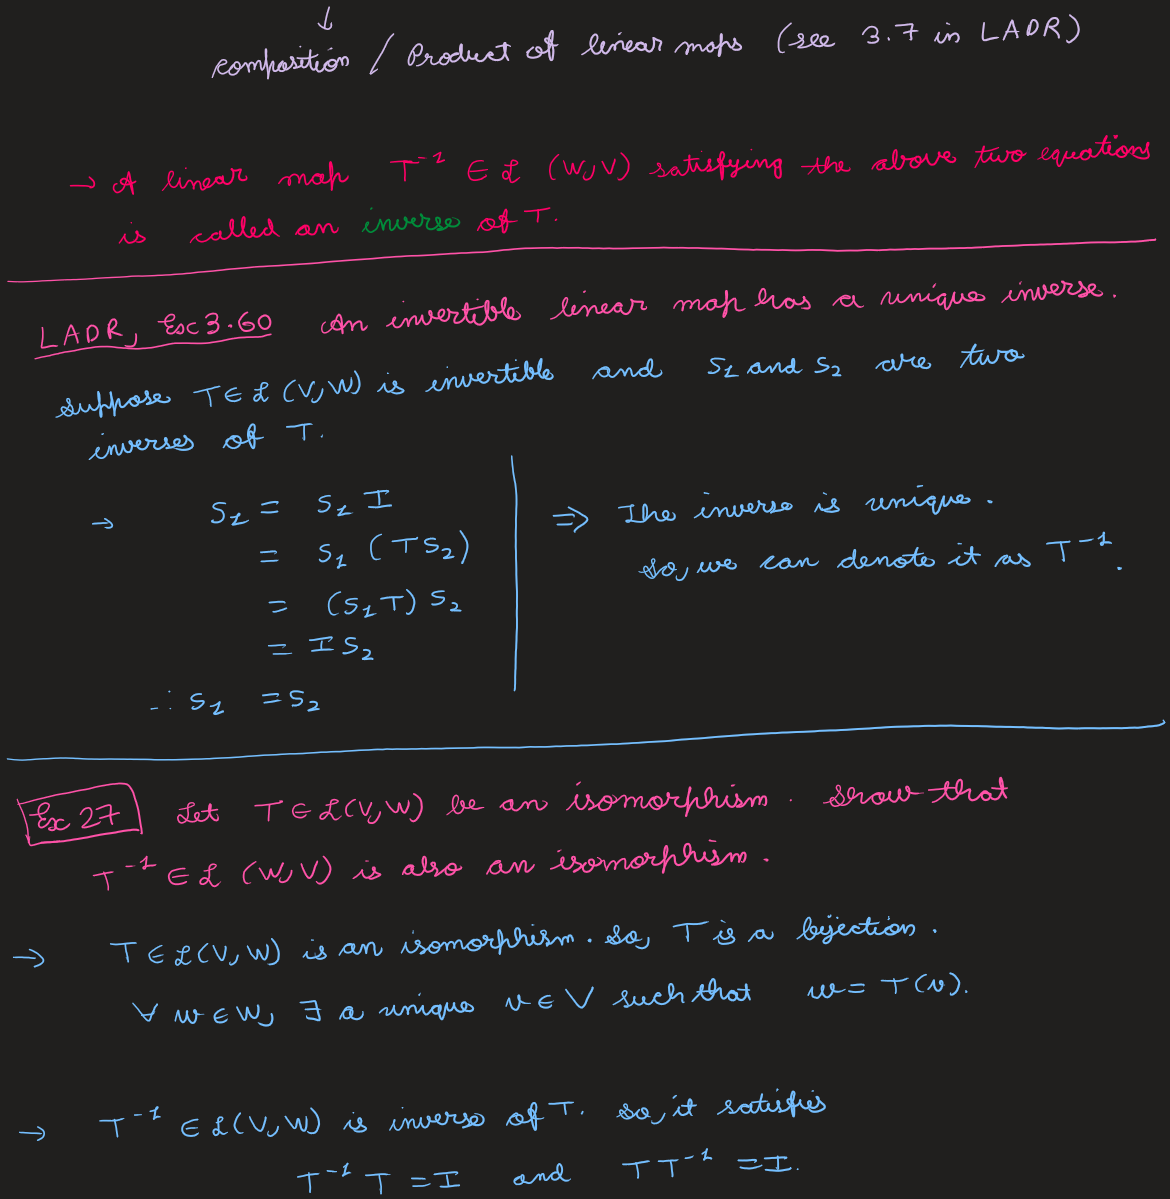 ↓
composition / Product of linear maps (see 3.7 in LADR)
→ A linear map T⁻¹ ∈ ℒ (W,V) satisfying the above two equations
is called an inverse of T.
LADR, Exc 3.60 An invertible linear map has a unique inverse.
Suppose T ∈ ℒ (V,W) is invertible and S₁ and S₂ are two
inverses of T.
→ S₁ = S₁ I
= S₁ (T S₂)
= (S₁ T) S₂
= I S₂
∴ S₁ = S₂
⇒ The inverse is unique.
So, we can denote it as T⁻¹.
Ex 27 Let T ∈ ℒ(V,W) be an isomorphism. Show that
T⁻¹ ∈ ℒ (W,V) is also an isomorphism.
→ T ∈ ℒ(V,W) is an isomorphism. So, T is a bijection.
∀ w ∈ W, ∃ a unique v ∈ V such that w = T(v).
→ T⁻¹ ∈ ℒ(V,W) is inverse of T. So, it satisfies
T⁻¹ T = I and T T⁻¹ = I.